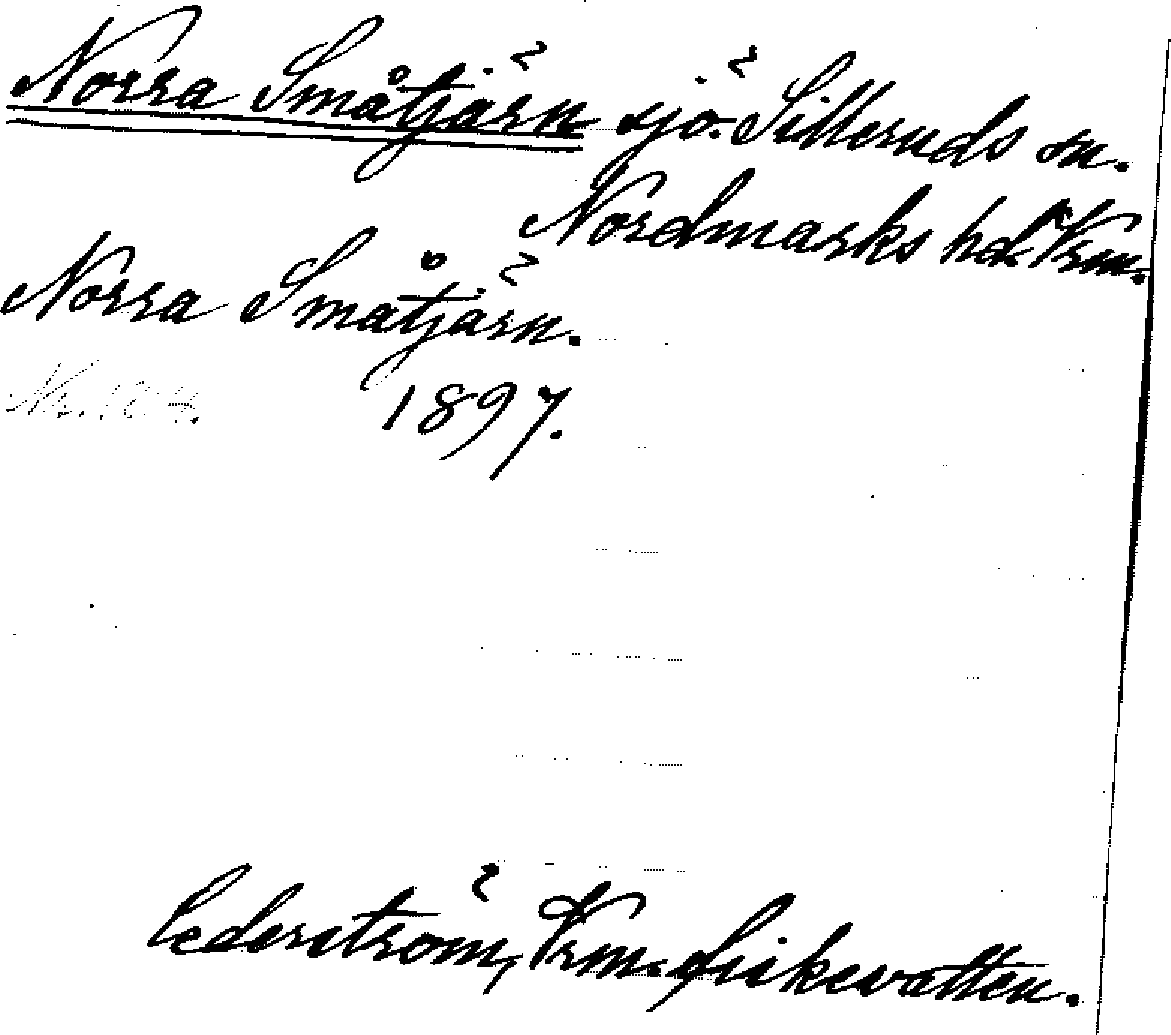 Norra Småtjärn sjö. Silleruds sn.
Nordmarks hd. Vrm.
Norra Småtjärn.
Nr. 104.
1897.
Cederström, Vrm. fiskevatten.